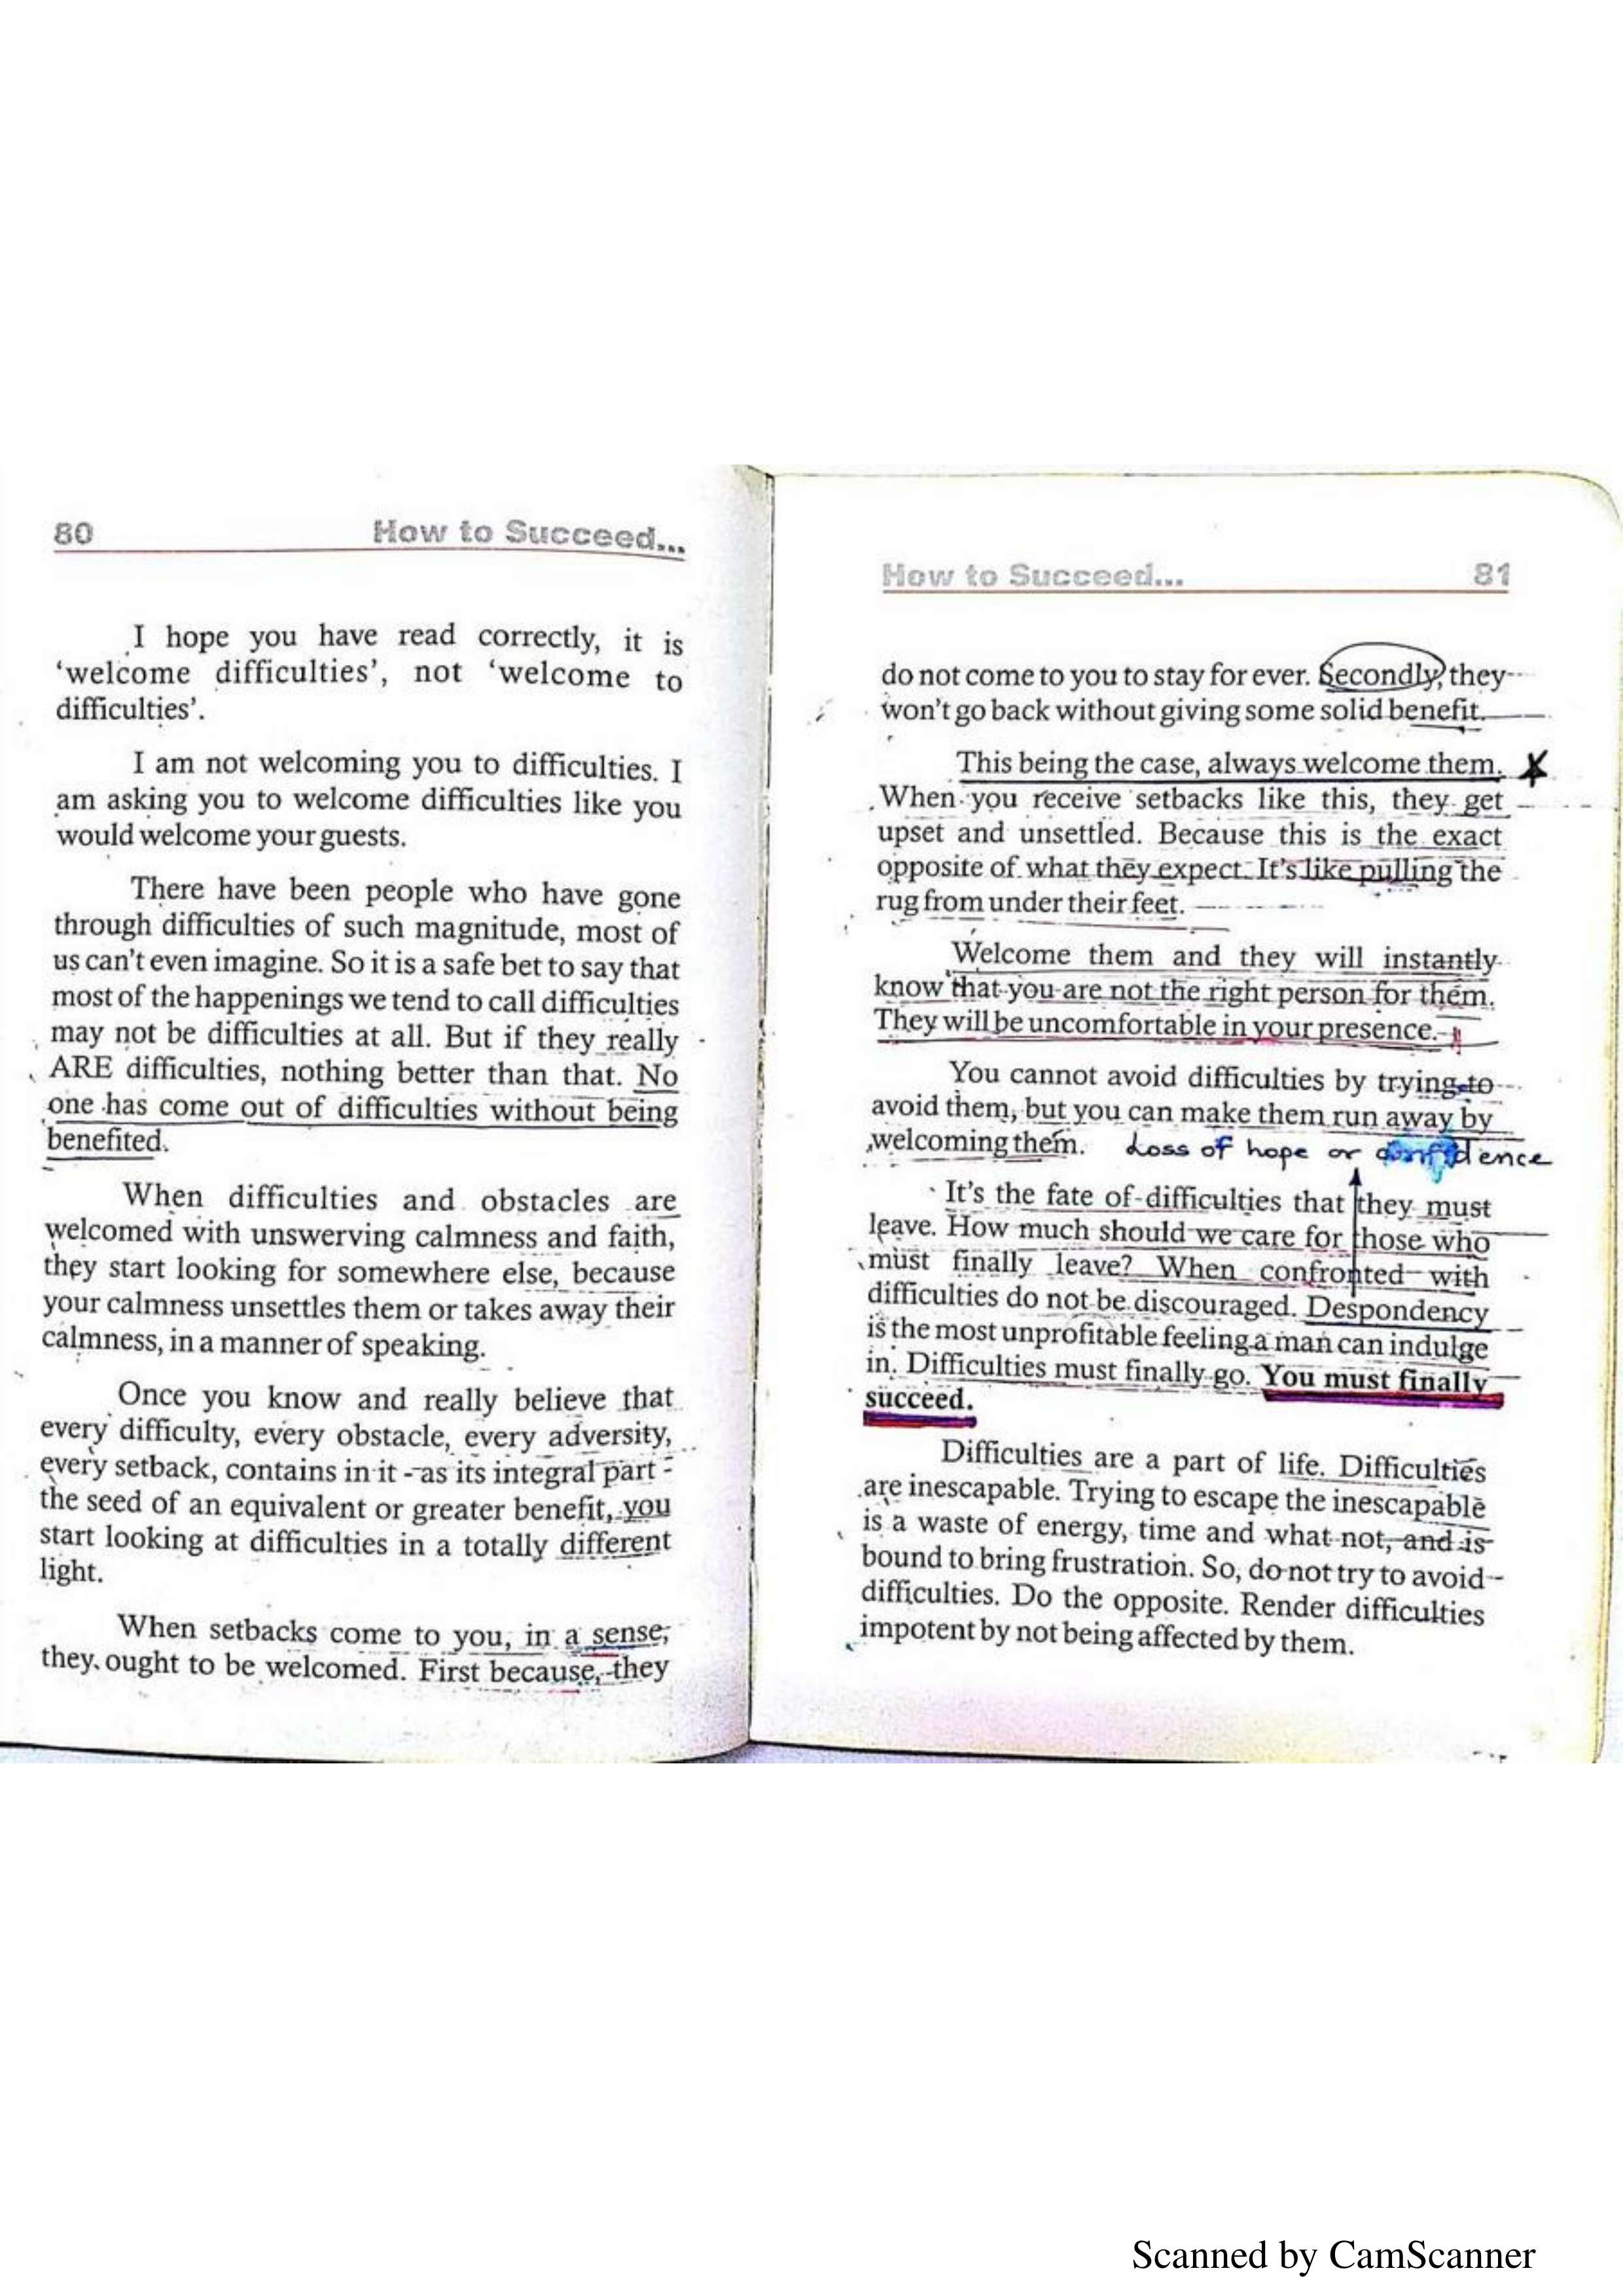 80 How to Succeed...
I hope you have read correctly, it is
‘welcome difficulties’, not ‘welcome to
difficulties’.
I am not welcoming you to difficulties. I
am asking you to welcome difficulties like you
would welcome your guests.
There have been people who have gone
through difficulties of such magnitude, most of
us can't even imagine. So it is a safe bet to say that
most of the happenings we tend to call difficulties
may not be difficulties at all. But if they really
ARE difficulties, nothing better than that. No
one has come out of difficulties without being
benefited.
When difficulties and obstacles are
welcomed with unswerving calmness and faith,
they start looking for somewhere else, because
your calmness unsettles them or takes away their
calmness, in a manner of speaking.
Once you know and really believe that
every difficulty, every obstacle, every adversity,
every setback, contains in it - as its integral part -
the seed of an equivalent or greater benefit, you
start looking at difficulties in a totally different
light.
When setbacks come to you, in a sense,
they ought to be welcomed. First because, they
How to Succeed... 81
do not come to you to stay for ever. Secondly, they
won't go back without giving some solid benefit.
This being the case, always welcome them.
When you receive setbacks like this, they get
upset and unsettled. Because this is the exact
opposite of what they expect. It's like pulling the
rug from under their feet.
Welcome them and they will instantly
know that you are not the right person for them.
They will be uncomfortable in your presence.
You cannot avoid difficulties by trying to
avoid them, but you can make them run away by
welcoming them. Loss of hope or confidence
It's the fate of difficulties that they must
leave. How much should we care for those who
must finally leave? When confronted with
difficulties do not be discouraged. Despondency
is the most unprofitable feeling a man can indulge
in. Difficulties must finally go. You must finally
succeed.
Difficulties are a part of life. Difficulties
are inescapable. Trying to escape the inescapable
is a waste of energy, time and what not, and is
bound to bring frustration. So, do not try to avoid
difficulties. Do the opposite. Render difficulties
impotent by not being affected by them.
Scanned by CamScanner